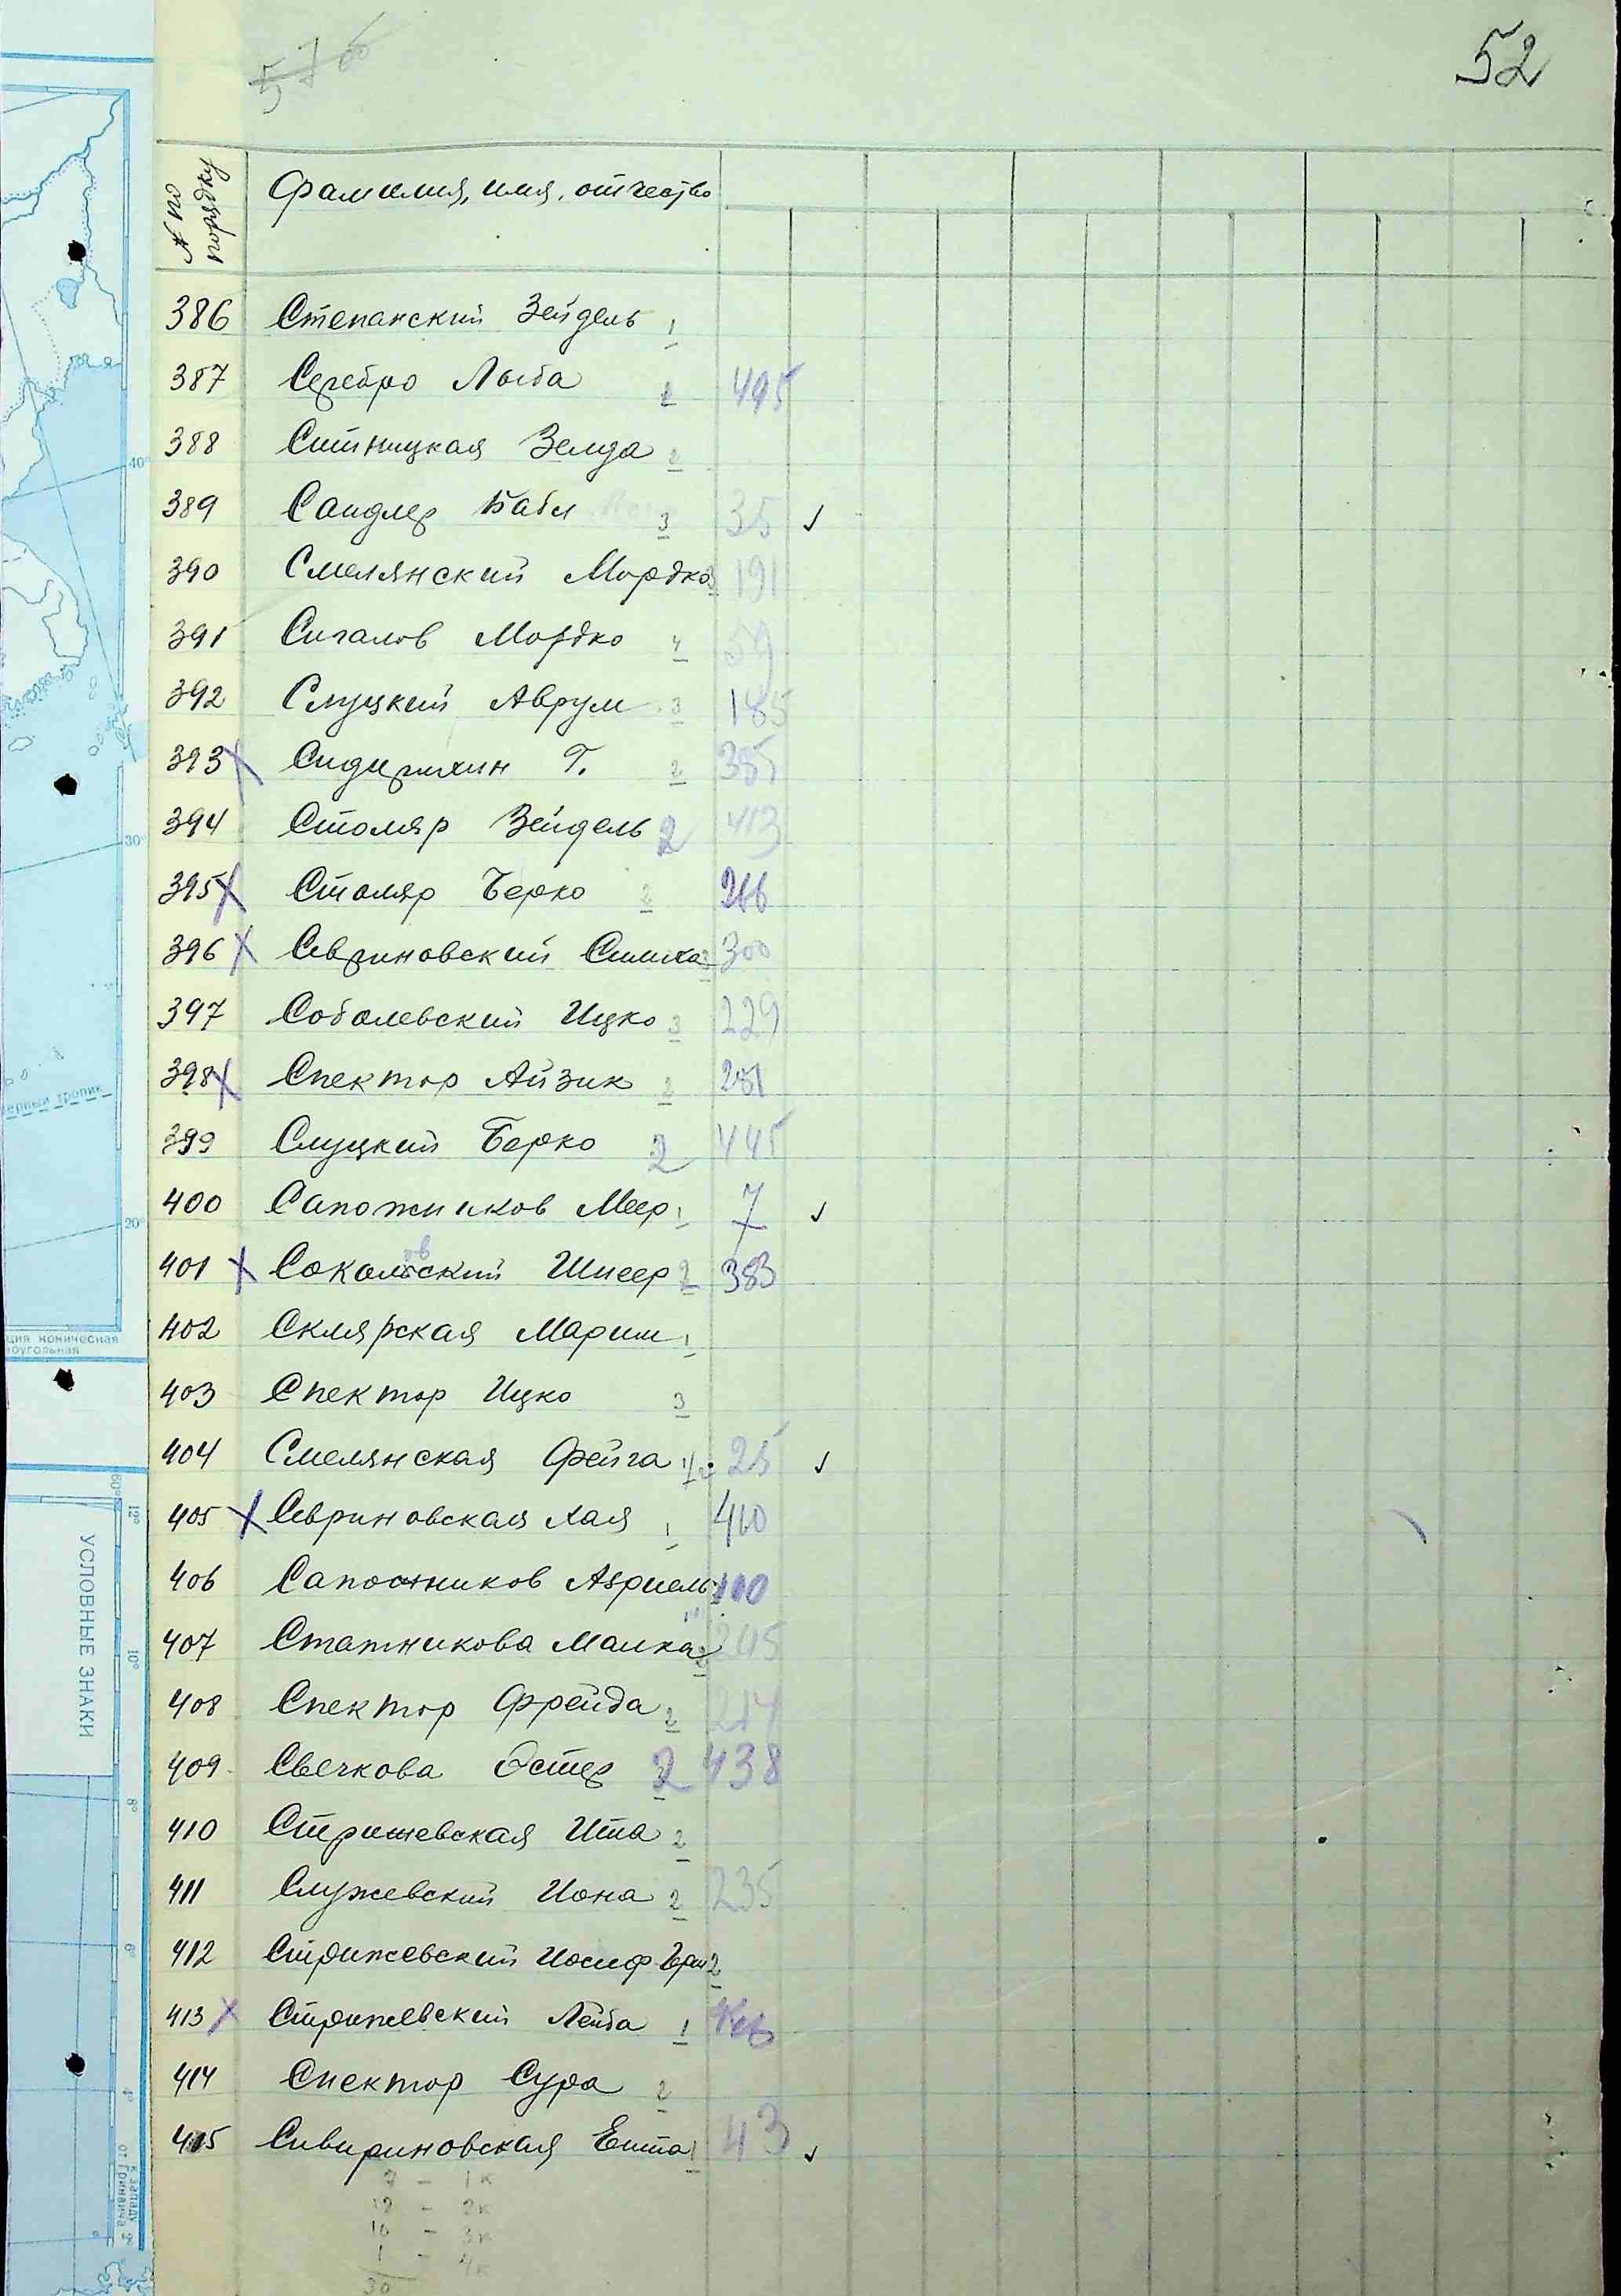 52
№ по порядку Фамилия, имя, отчество
386 Степанский Зейдель 1
387 Серебро Лыба 2 495
388 Ситницкая Зелда 2
389 Сандлер Бабл 3 35 ✓
390 Смелянский Мордко 3 191
391 Сигалов Мордко 4 59
392 Слуцкий Аврум 3 185
393 X Г. 2 385
394 Столяр Зейдель 2 413
395 X Столяр Берко 2 266
396 X Севриновский Симха 3 300
397 Соболевский Ицко 3 229
398 X Спектор Айзик 2 251
399 Слуцкий Берко 2 445
400 Сапожников Меер 1 7 ✓
401 X Сокольский Шнеер 2 383
402 Склярская Мариам 1
403 Спектор Ицко 3
404 Смелянская Фейга 25 ✓
405 X Севриновская Хая 1 410
406 Сапожников Азриель 100
407 Статникова Малка 2 245
408 Спектор Фрейда 2 214
409 Свечкова Эстер 2 438
40° 30° 20°
410 Стрижевская Ита 2
411 Служевский Иона 2 235
412 Стрижевский Иосиф 2
413 X Стрижевский Лейба 1
414 Спектор Сура 2
415 Сивириновская Ента 1 43 ✓
7 - 1к
12 - 2к
10 - 3к
1 - 4к
30
УСЛОВНЫЕ ЗНАКИ